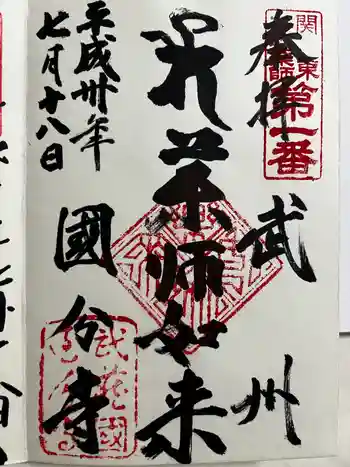 奉拝
関東
薬師
第一番
武州
薬師如来
國分寺
平成卅年
七月十八日
武蔵國